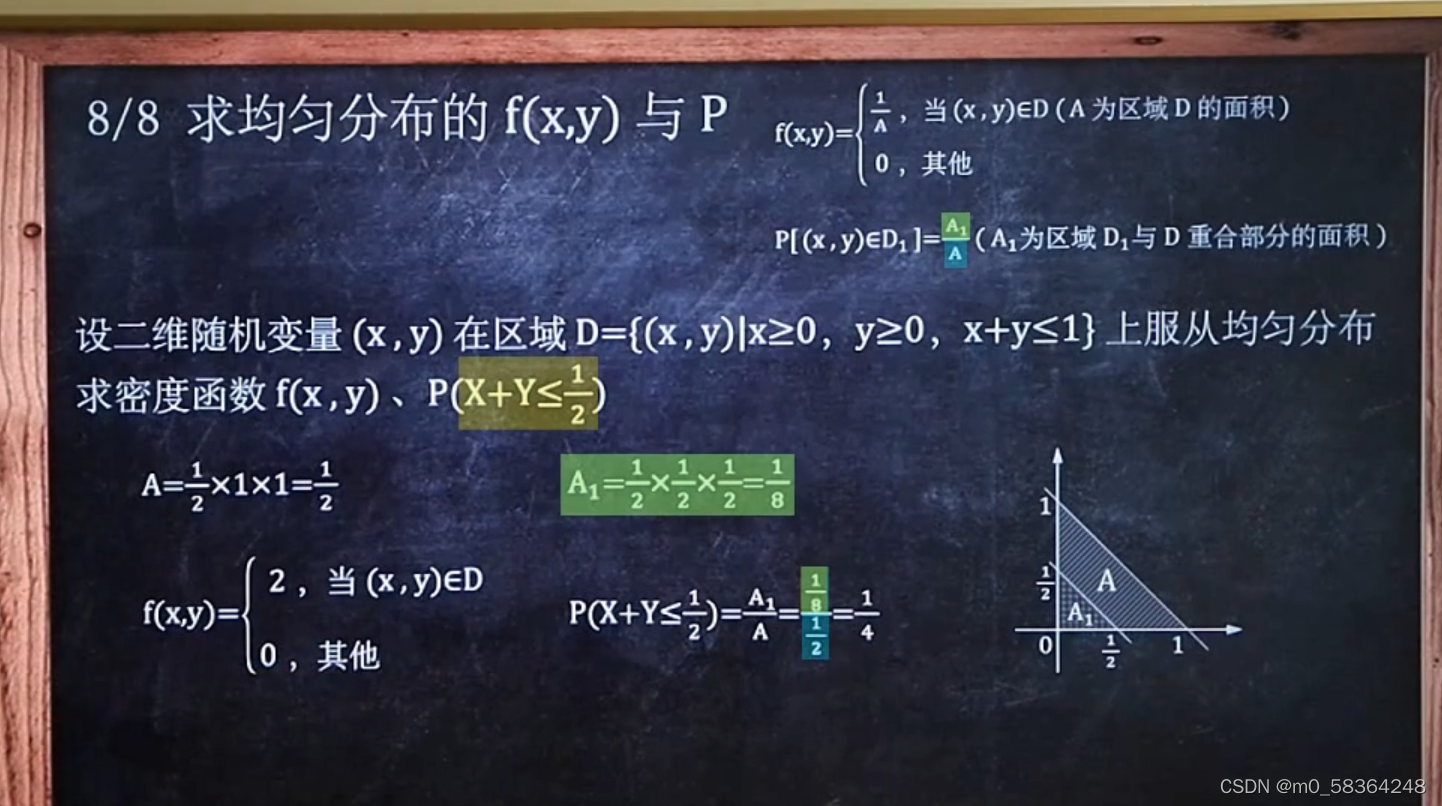 8/8 求均匀分布的 f(x,y) 与 P
f(x,y)={ 1/A , 当 (x,y)∈D (A 为区域 D 的面积)
0 , 其他
P[(x,y)∈D₁]=A₁/A (A₁为区域 D₁与 D 重合部分的面积)
设二维随机变量 (x,y) 在区域 D={(x,y)|x≥0, y≥0, x+y≤1} 上服从均匀分布
求密度函数 f(x,y) 、P(X+Y≤1/2)
A=1/2×1×1=1/2
A₁=1/2×1/2×1/2=1/8
f(x,y)={ 2 , 当 (x,y)∈D
0 , 其他
P(X+Y≤1/2)=A₁/A=(1/8)/(1/2)=1/4
1
1/2
A
A₁
0
1/2
1
CSDN @m0_58364248